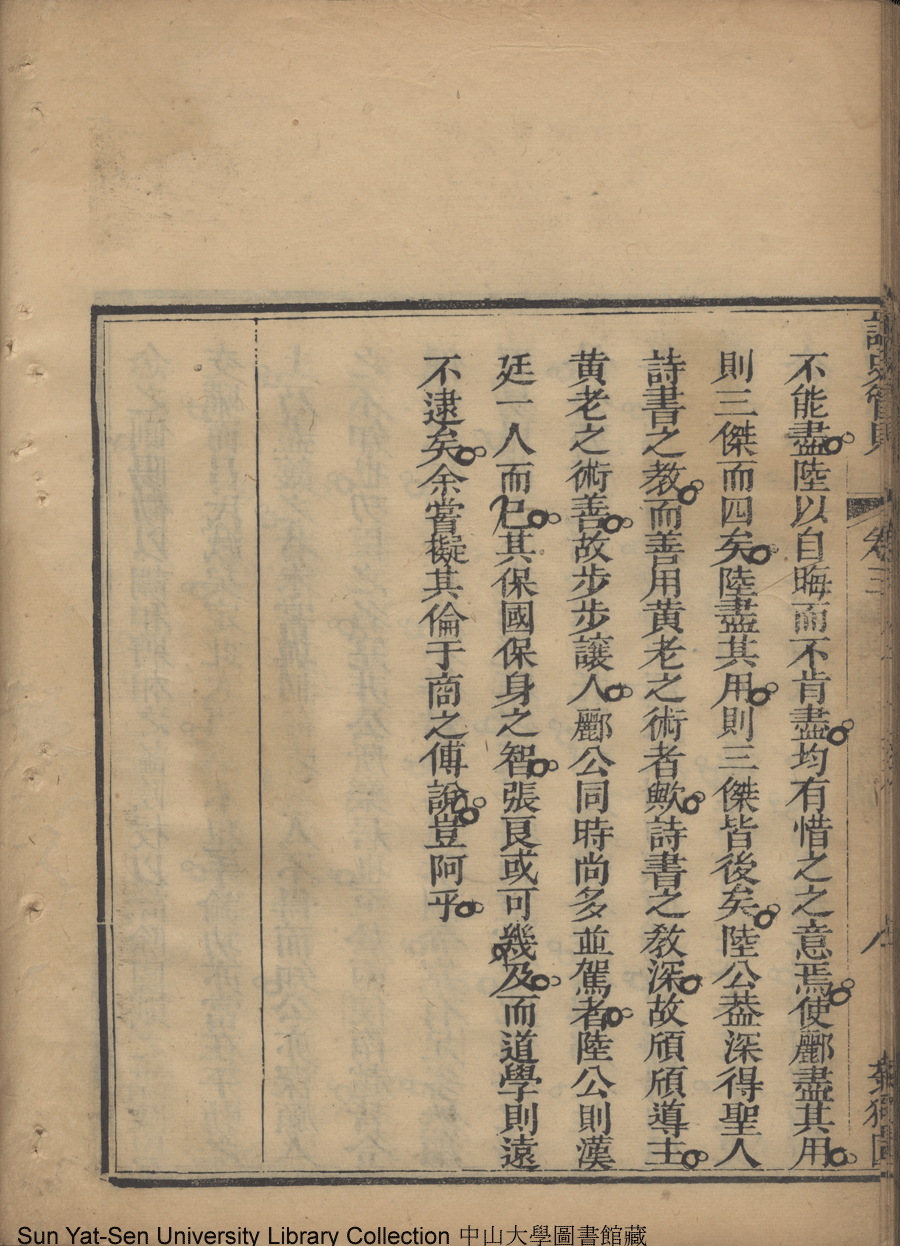 不能盡陸以自晦而不肯盡均有惜之之意焉使酈盡其用
則三傑而四矣陸盡其用則三傑皆後矣陸公葢深得聖人
詩書之教而善用黄老之術者歟詩書之教深故頎頎導主
黄老之術善故步步讓人酈公同時尚多並駕者陸公則漢
廷一人而已其保國保身之智張良或可幾及而道學則遠
不逮矣余嘗擬其倫于商之傅說豈阿乎
卷三
Sun Yat-Sen University Library Collection 中山大學圖書館藏